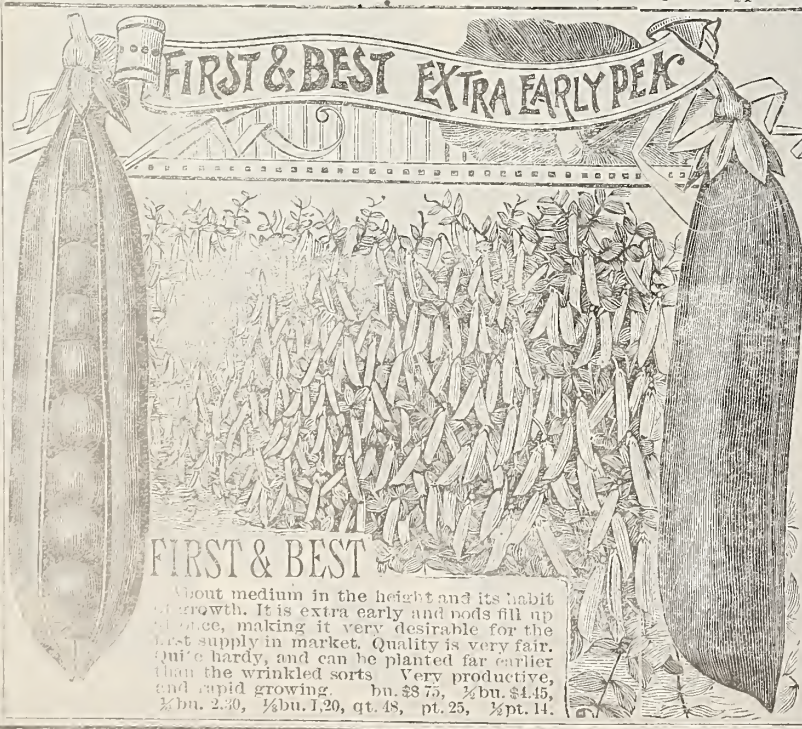 FIRST & BEST EXTRA EARLY PEA
FIRST & BEST
About medium in the height and its habit
of growth. It is extra early and pods fill up
at once, making it very desirable for the
first supply in market. Quality is very fair.
Quite hardy, and can be planted far earlier
than the wrinkled sorts Very productive,
and rapid growing. bu. $8 75, ½bu. $4.45,
¼bu. 2.30, ⅛bu. 1,20, qt. 48, pt. 25, ½pt. 14.